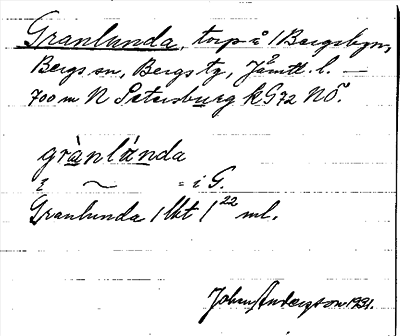 Granlunda, torp å 1 Bergsbyn,
Bergs sn, Bergs tg, Jämtl. l. —
700 m N Petersburg k G72 NÖ.
grànlúnda
i ~ = i G.
Granlunda 1 lkt / 22 ml.
Johan Anderson 1931.